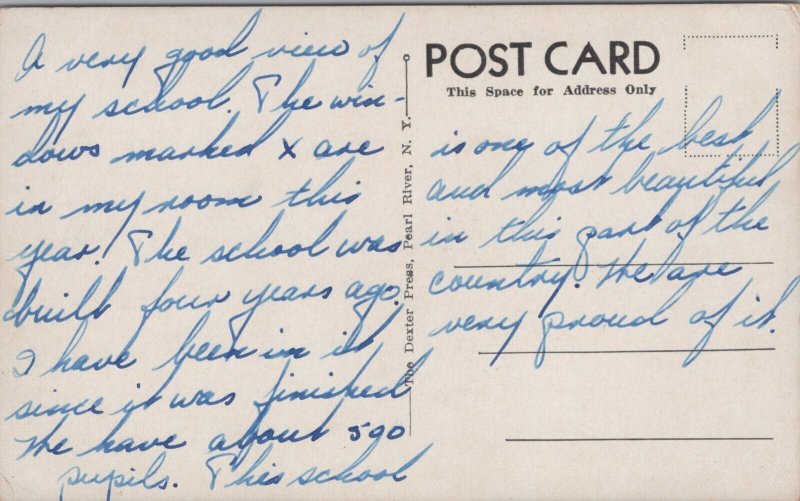 A very good view of
my school. The win-
dows marked X are
in my room this
year. The school was
built four years ago.
I have been in it
since it was finished
We have about 500
pupils. This school
The Dexter Press, Pearl River, N. Y.
POST CARD
This Space for Address Only
is one of the best
and most beautiful
in this part of the
country. We are
very proud of it.